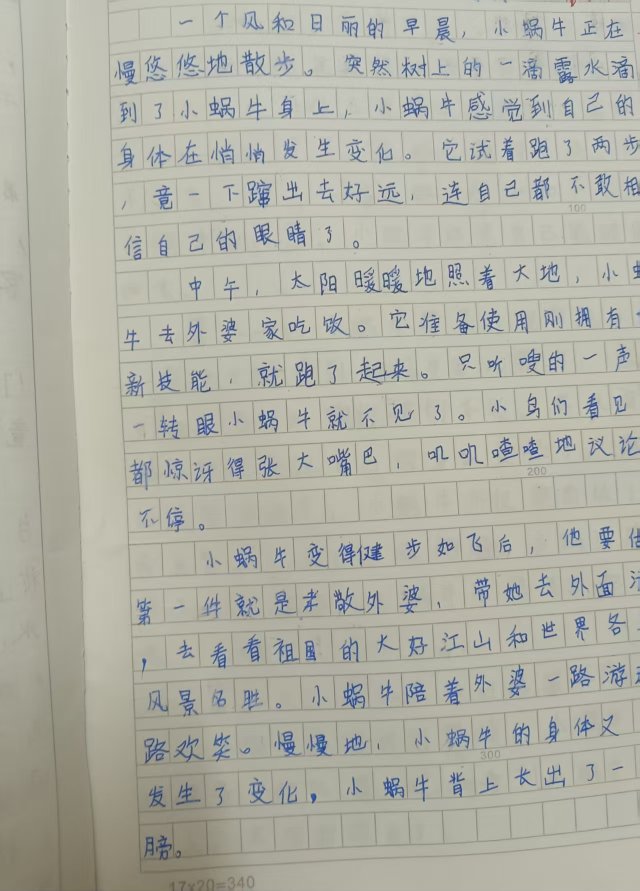 一个风和日丽的早晨，小蜗牛正在
慢悠悠地散步。突然树上的一滴露水滴
到了小蜗牛身上，小蜗牛感觉到自己的
身体在悄悄发生变化。它试着跑了两步
，竟一下蹿出去好远，连自己都不敢相
100
信自己的眼睛了。
中午，太阳暖暖地照着大地，小蜗
牛去外婆家吃饭。它准备使用刚拥有
新技能，就跑了起来。只听嗖的一声
一转眼小蜗牛就不见了。小鸟们看见
都惊讶得张大嘴巴，叽叽喳喳地议论
200
不停。
小蜗牛变得健步如飞后，他要做
第一件就是孝敬外婆，带她去外面
，去看看祖国的大好江山和世界各
风景名胜。小蜗牛陪着外婆一路游
路欢笑。慢慢地，小蜗牛的身体又
300
发生了变化，小蜗牛背上长出了一
膀。
17×20=340